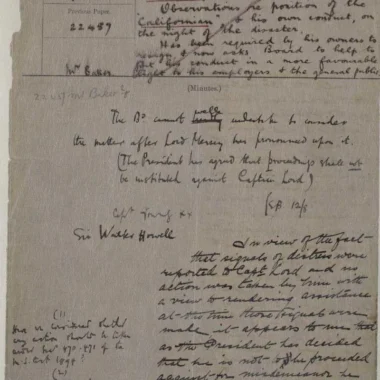 Previous Paper.
22489
Mr Baker
Observations re position of the
"Californian" & his own conduct, on
the night of the disaster.
Has been required by his owners to
resign & now asks Board to help to
put his conduct in a more favourable
light to his employers & the general public
(Minutes.)
The Bd cannot well undertake to consider
the matter after Lord Mersey has pronounced upon it.
(The President has agreed that proceedings shall not
be instituted against Captain Lord)
12/8
Capt Young
Sir Walter Howell
In view of the fact
that signals of distress were
reported to Capt Lord and no
action was taken by him with
a view to rendering assistance
at the time those signals were
made it appears to me that
as the President has decided
that he is not to be proceeded
against for misdemeanor he
(1)
any action should be taken
under
470-471 of the
M.S. Act 1894?
(2)